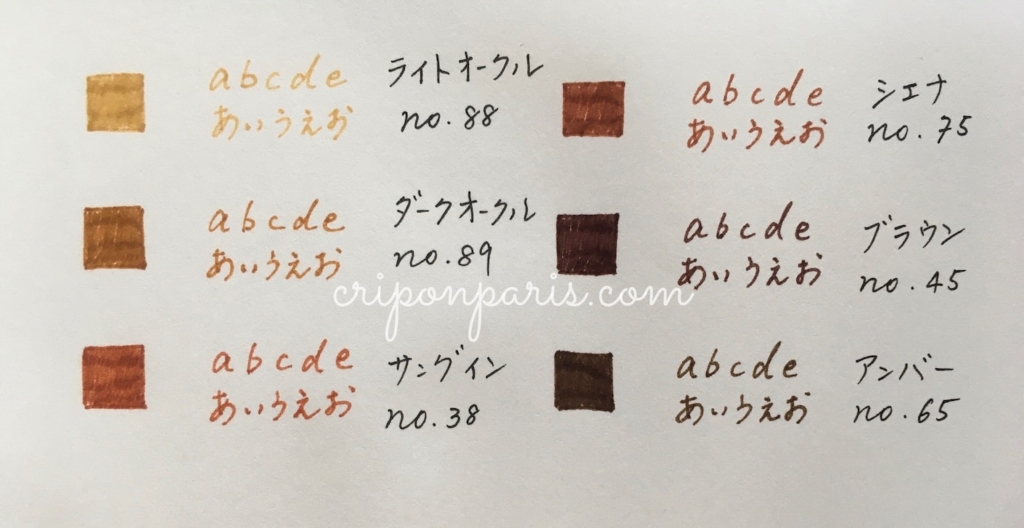 abcde ライトオークル
あいうえお no.88
abcde シエナ
あいうえお no.75
abcde ダークオークル
あいうえお no.89
abcde ブラウン
あいうえお no.45
criponparis.com
abcde サングイン
あいうえお no.38
abcde アンバー
あいうえお no.65